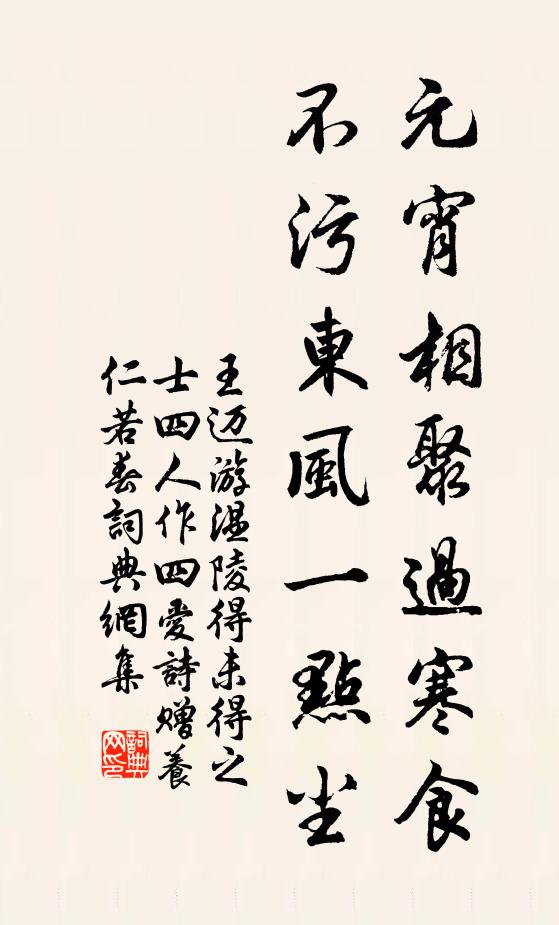 元宵相聚過寒食
不污東風一點尘
王迈游温陵得未得之
士四人作四愛詩贈養
仁若春詞典網集
詞典
网印